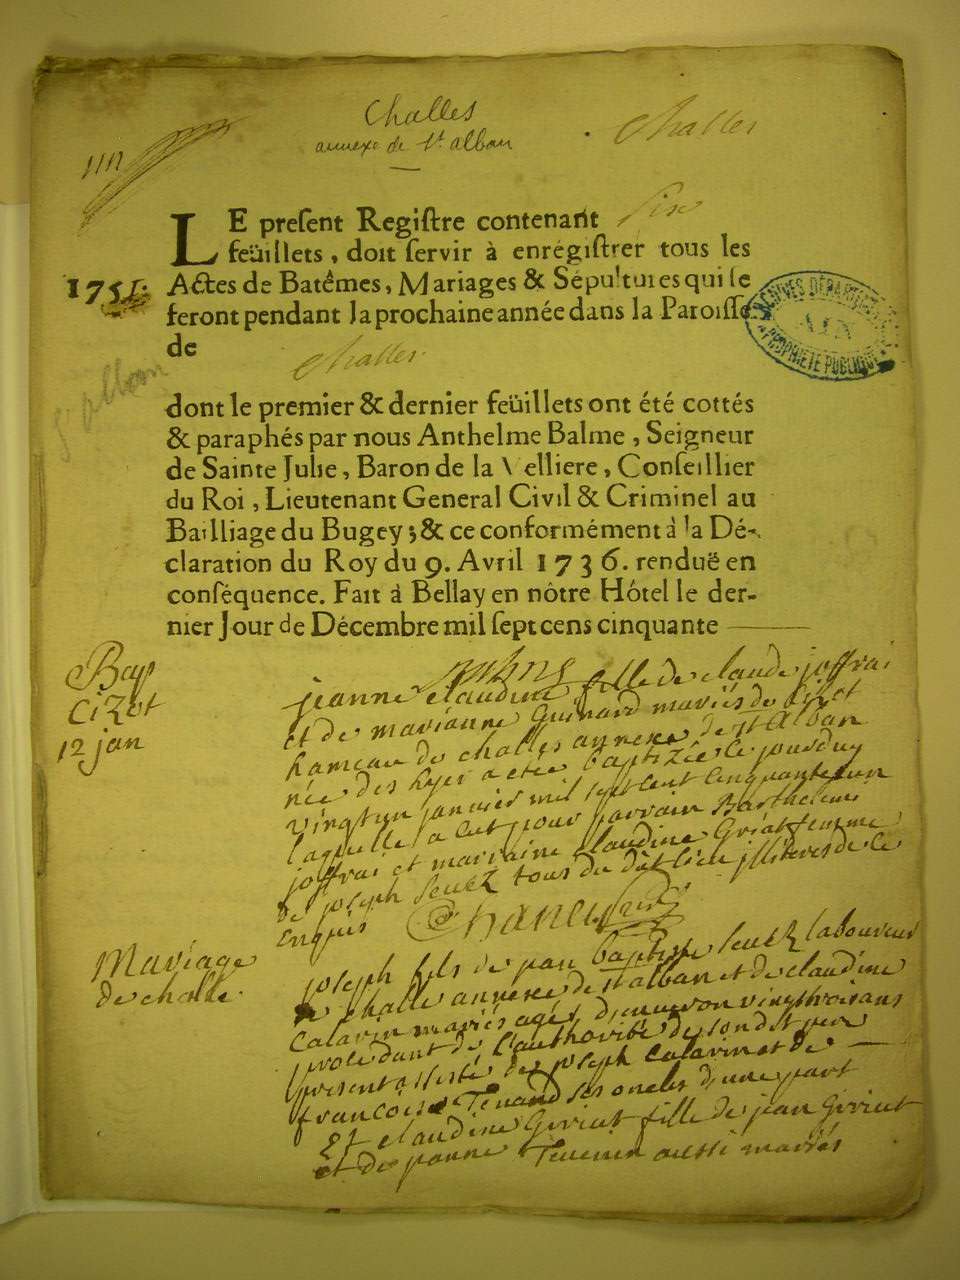 Challes
annexe de St alban
Challes
LE preſent Regiſtre contenant six
feüillets, doit ſervir à enrégiſtrer tous les
1751. Actes de Batêmes, Mariages & Sépultures qui ſe
feront pendant la prochaine année dans la Paroiſſe
de Challes.
St alban
ARCHIVES DÉPARTEMENTALES
AIN
PROPRIÉTÉ PUBLIQUE
dont le premier & dernier feüillets ont été cottés
& paraphés par nous Anthelme Balme, Seigneur
de Sainte Julie, Baron de la Velliere, Conſeillier
du Roi, Lieutenant General Civil & Criminel au
Bailliage du Bugey; & ce conformément à la Dé-
claration du Roy du 9. Avril 1736. renduë en
conſéquence. Fait à Bellay en nôtre Hôtel le der-
nier Jour de Décembre mil ſept cens cinquante
Bap
Cizot
12 jan
jeanne claudine fille de claude joffrai
et de marianne Guinard mariés de Cizot
hameau de challes annexe de st alban
née des hyer a etée baptizée ce jourduy
vingtun janvier mil sept cent cinquante un
laquelle a eut pour parrain Barthelemi
joffrai et marraine claudine Griat femme
de joseph seuez tous du dit lieu illiteres de ce
Enquis
Mariage
de challe.
joseph fils de jean baptiste seuez laboureur
de challe annexe de st alban et de claudine
Calavin mariés agés d'environ vingt trois ans
procedant de l'authorité de son dit pere
present assisté de joseph Calavin et de
francois Tenand ses oncles d'une part
Et claudine Giriat fille de jean Giriat
et de jeanne Tevenin aussi mariés